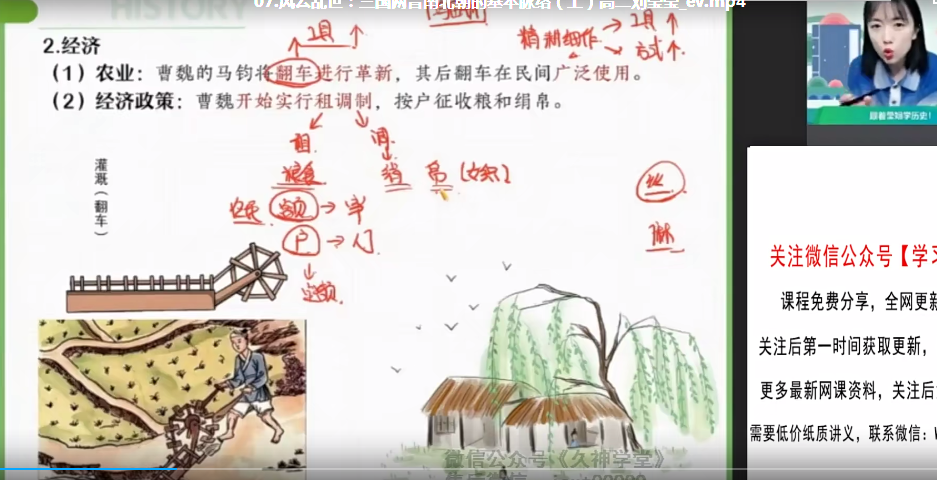 07.风云乱世：三国两晋南北朝的基本脉络（上）高二刘莹莹_ev.mp4
HISTORY
工具
精耕细作
工具
方式
2.经济
（1）农业：曹魏的马钧将翻车进行革新，其后翻车在民间广泛使用。
（2）经济政策：曹魏开始实行租调制，按户征收粮和绢帛。
租
调
粮食
绢 帛
丝
麻
农民 定额
户
定额
灌溉（翻车）
跟着莹姐学历史！
关注微信公众号【学习
课程免费分享，全网更新
关注后第一时间获取更新，
更多最新网课资料，关注后
需要低价纸质讲义，联系微信：W
微信公众号《久神学堂》